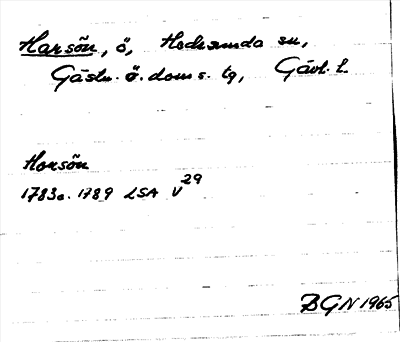 Harsön, ö, Hedesunda sn,
Gästr. ö. doms. tg, Gävl. l.
Harsön
1783 o. 1789 LSA V29
BGN 1965